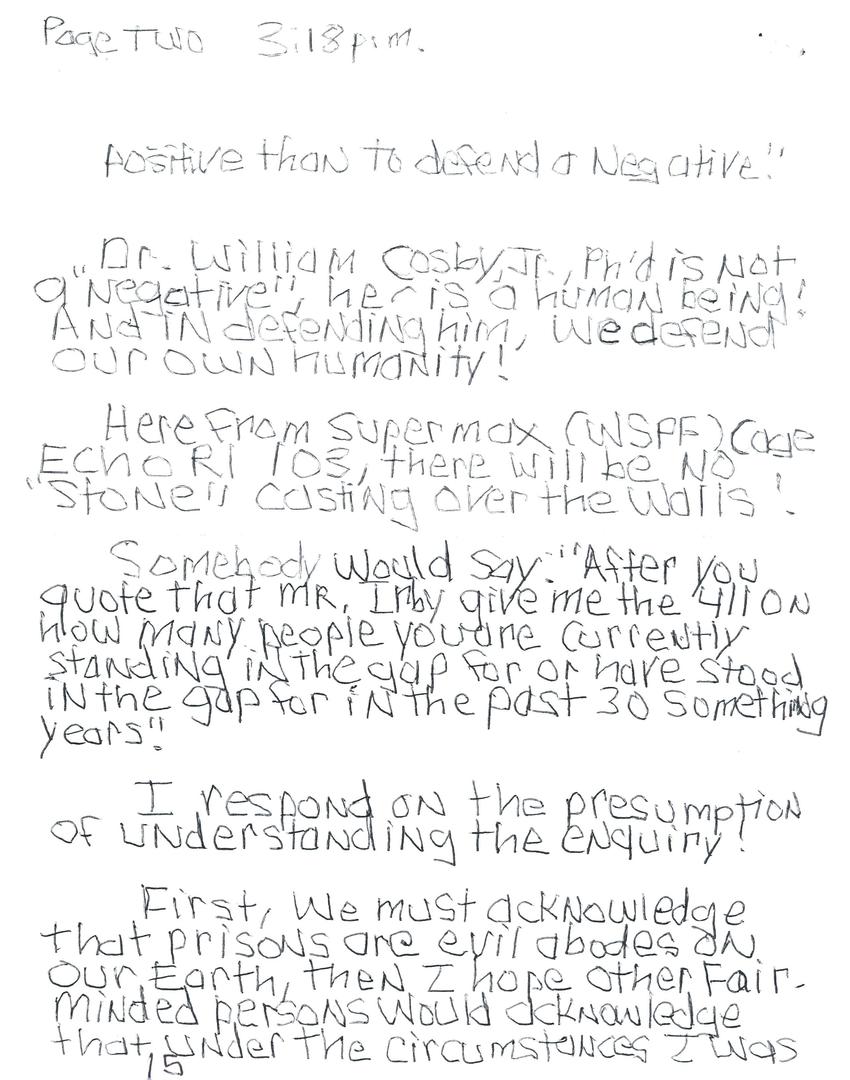 Page Two 3:18 p.m.
Positive than to defend a Negative."
"Dr. William Cosby, Jr., Ph'd is Not
a "Negative", he is a human being!
And in defending him, we defend
our own humanity!
Here From Supermax (WSPF) Cage
Echo R1 103, there will be NO
"Stone" casting over the walls!
Somebody would say: "After you
quote that MR. Irby give me the 411 ON
how many people you are currently
standing in the gap for or have stood
in the gap for in the past 30 something
years"!
I respond on the presumption
of understanding the enquiry!
First, We must acknowledge
that prisons are evil abodes on
our Earth, then I hope other Fair-
minded persons would acknowledge
that, under the circumstances I was
15